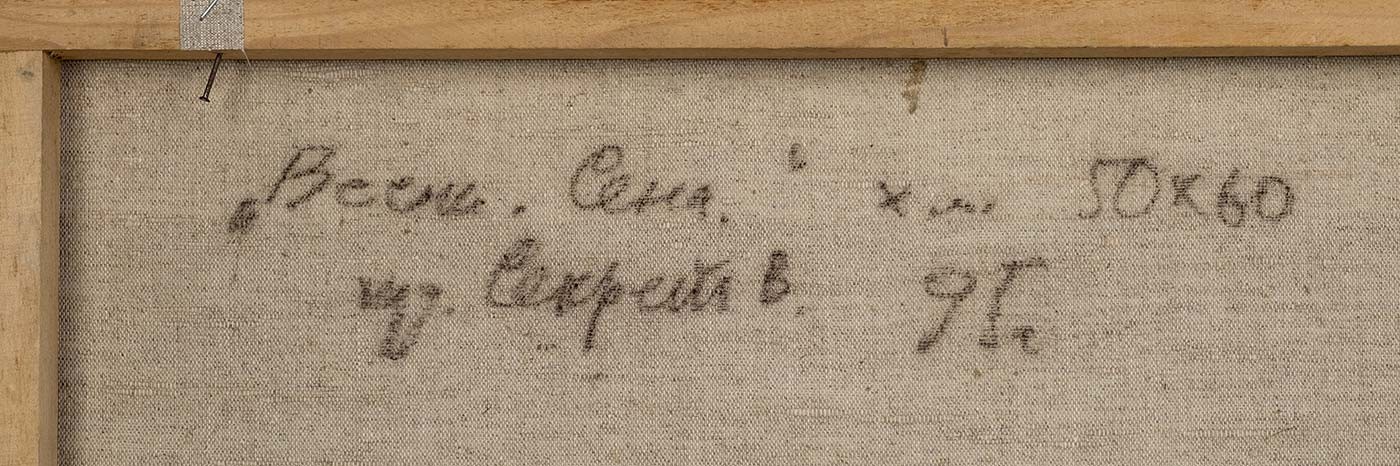 „Весна. Сена." х.м. 50х60
худ. Секрет В. 95г